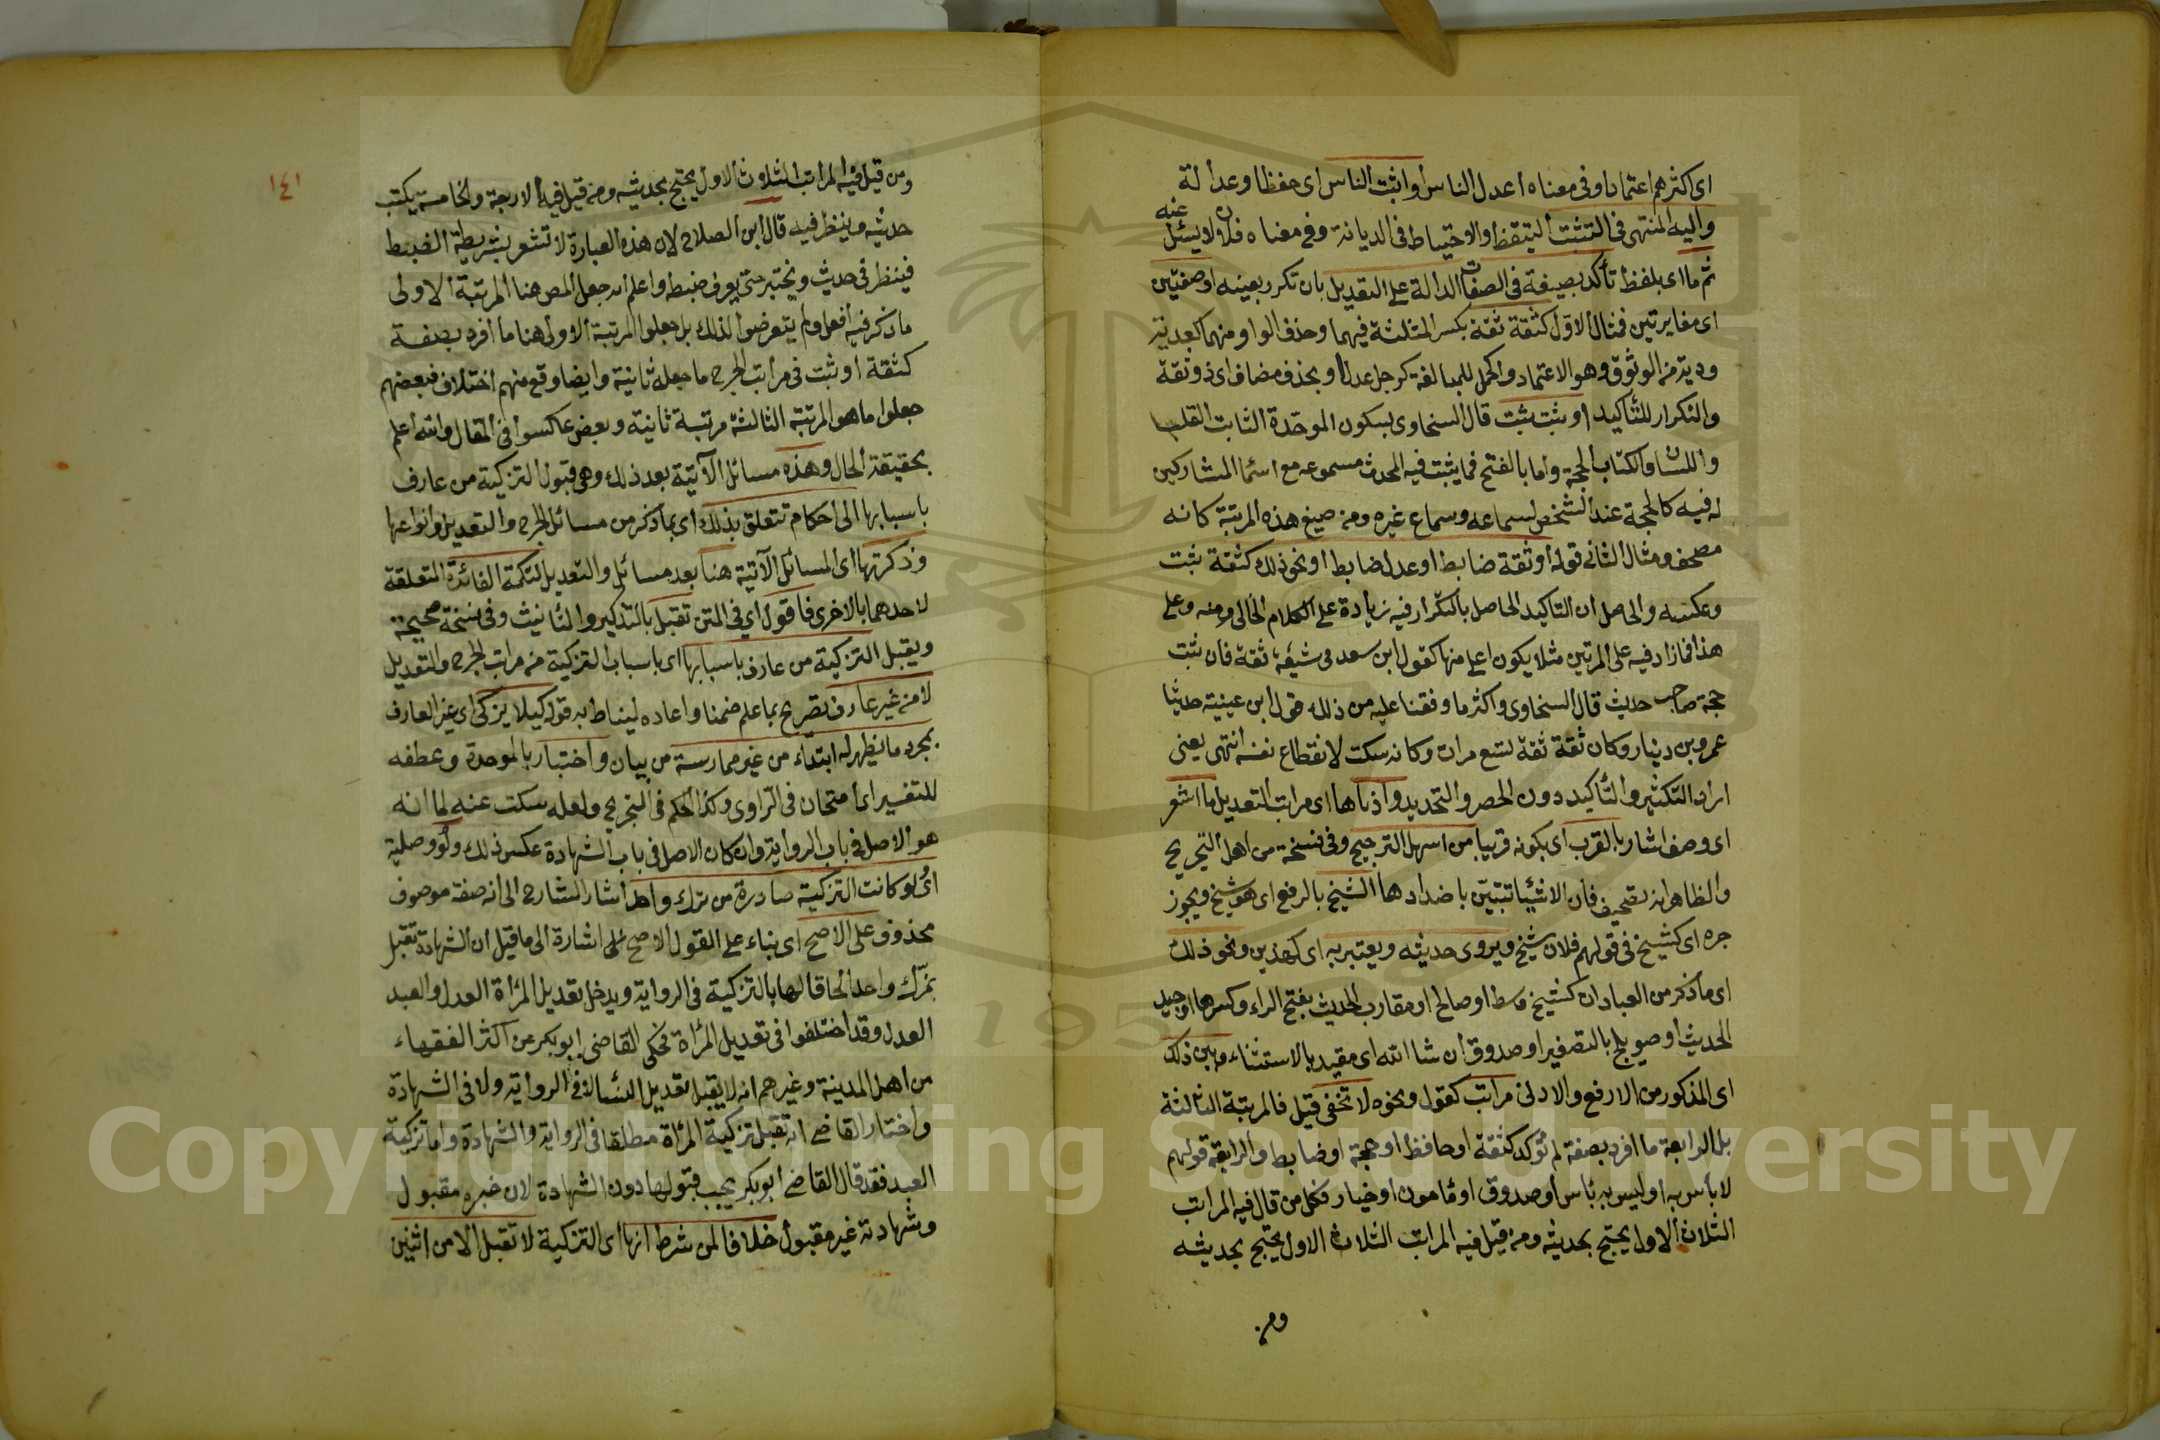 اى اكثرهم اعتمادا وفى معناه اعدل الناس او اثبت الناس اى حفظا وعدالة
واليه المنتهى فى التثبت التيقظ والاحتياط فى الديانة وفى معناه فلان لا يسئل عنه
ثم ما اى بلفظ تأكد بصيغة فى الصفات الدالة على التعديل بان تكرر بعينه او صفتين
اى مغايرتين فمثال الاول كثقة ثقة بكسر المثلثة فيهما وحذف الواو منهما كعدة
ودية من الوثوق وهو الاعتماد والحمل للمبالغة كرجل عدل او بحذف مضاف اى ذو ثقة
والتكرار للتأكيد او ثبت ثبت قال السخاوى بسكون الموحدة الثابت القلب
واللسان والكتاب الحجة واما بالفتح فما يثبت فيه المحدث مسموعه مع اسما المشاركين
له فيه كالحجة عند الشخص لسماعه وسماع غيره ومن صيغ هذه المرتبة كانه
مصحف ومثال الثانى قوله او ثقة ضابط او عدل ضابط او نحو ذلك كثقة ثبت
وعكسه والحاصل ان التاكيد الحاصل بالتكرار فيه زيادة على الكلام الخالى منه وعلى
هذا فما زاد فيه على المرتين مثلا يكون اعلى منها كقول ابن سعد فى شعبة ثقة فان ثبت
حجة صاحب حديث قال السخاوى واكثر ما وقفنا عليه من ذلك قول ابن عيينة حدثنا
عمرو بن دينار وكان ثقة ثقة تسع مرات وكانه سكت لانقطاع نفسه انتهى يعنى
اراد التكثير والتأكيد دون الحصر والتحديد وادناها اى مراتب التعديل ما اشعر
اى وصف اشار بالقرب اى بكونه قريبا من اسهل الترجيح وفى نسخة من اهل التجريح
والظاهر انه تصحيف فان الاشيا تتبين باضدادها الشيخ بالرفع اى هو شيخ ويجوز
جره اى كشيخ فى قولهم فلان شيخ ويروى حديثه ويعتبر به اى كهذين ونحو ذلك
اى ما ذكر من العبادان كشيخ وسط او صالح او مقارب الحديث بفتح الراء وكسرها او جيد
الحديث او صويلح بالتصغير او صدوق ان شا الله اى مقيد بالاستثناء وبين ذلك
اى المذكور من الارفع والادنى مراتب كقول ونحوه لا تخفى قيل فالمرتبة الثالثة
بل الرابعة ما افرد بصفة لم تؤكد كثقة او حافظ او حجة او ضابط والرابعة قولهم
لا بأس به او ليس به بأس او صدوق او مأمون او خيار فكل من قال فيه المراتب
الثلاث الاول يحتج بحديثه ومن قيل فيه المراتب الثلاث الاول يحتج بحديثه
ومن
١٤١
ومن قيل فيه المراتب الثلاث الاول يحتج بحديثه ومن قيل فيه الاربعة والخامسة يكتب
حديثه وينظر فيه قال ابن الصلاح لان هذه العبارة لا تشعر بشريطة الضبط
فينظر فى حديثه ويختبر حتى يعرف ضبطه واعلم انه جعل المص هنا المرتبة الاولى
ما ذكر فيه افعل ولم يتعرضوا لذلك بل جعلوا المرتبة الاولى هنا ما افرد بصفة
كثقة او ثبت فى مراتب الجرح ما جعله ثانية وايضا وقع منهم اختلاف فبعضهم
جعلوا ما هو المرتبة الثالثة مرتبة ثانية وبعض عاكسوا فى المقال والله اعلم
بحقيقة الحال وهذه مسائل الآتية بعد ذلك وهى قبول التزكية من عارف
باسبابها الى احكام تتعلق بذلك اى بما ذكر من مسائل الجرح والتعديل وانواعها
وذكرتها اى المسائل الآتية هنا بعد مسائل والتعديل لتكمة الفائدة المتعلقة
لاحدهما بالاخرى فاقول اى فى المتن تقبل بالتذكير والتانيث وفى نسخة صحيحة
ويقبل التزكية من عارف باسبابها اى باسباب التزكية من مراتب الجرح والتعديل
لا من غير عارف تصريح بما علم ضمنا واعاده ليناط به قوله كيلا يزكى اى غير العارف
بمجرد ما يظهر له ابتداء من غير ممارسة من بيان واختبار بالموحدة وعطفه
للتفسير اى امتحان فى الراوى وكذا الحكم فى التجريح ولعله سكت عنه لما انه
هو الاصل فى باب الرواية وان كان الاصل فى باب الشهادة عكس ذلك ولو وصلية
اى لو كانت التزكية صادرة من مزك واحد اشار الشارح الى انه صفة موصوف
محذوف على الاصح اى بناء على القول الاصح اشارة الى ما قيل ان الشهادة تقبل
بمزك واحد الحاقا لها بالتزكية فى الرواية ويدخل تعديل المرأة العدل والعبد
العدل وقد اختلفوا فى تعديل المرأة فحكى القاضى ابو بكر عن اكثر الفقهاء
من اهل المدينة وغيرهم انه لا يقبل تعديل النسا لا فى الرواية ولا فى الشهادة
واختار القاضى انه تقبل تزكية المرأة مطلقا فى الرواية والشهادة واما تزكية
العبد فقد قال القاضى ابو بكر يجب قبولها دون الشهادة لان خبره مقبول
وشهادته غير مقبول خلافا لمن شرط انها اى التزكية لا تقبل الا من اثنين
Copyright © King Saud University
1957